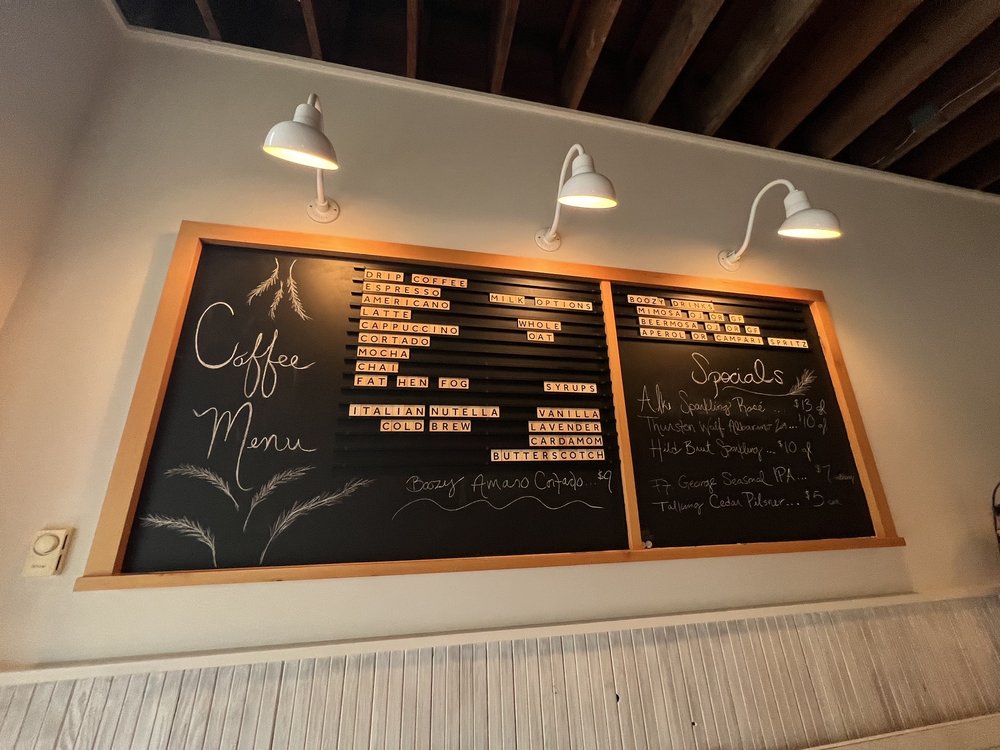 Coffee
Menu
DRIP COFFEE
ESPRESSO
AMERICANO
LATTE
CAPPUCCINO
CORTADO
MOCHA
CHAI
FAT HEN FOG
ITALIAN NUTELLA
COLD BREW
MILK OPTIONS
WHOLE
OAT
SYRUPS
VANILLA
LAVENDER
CARDAMOM
BUTTERSCOTCH
Boozy Amaro Cortado...$9
BOOZY DRINKS
MIMOSA OJ OR GF
BEERMOSA OJ OR GF
APEROL OR CAMPARI SPRITZ
Specials
Sparkling Rosé .. $13 gl
Thurston Wolf $10 gl
Hild Brut Sparkling... $10 gl
Ft George Seasonal IPA... $7
Talking Cedar Pilsner... $5 can